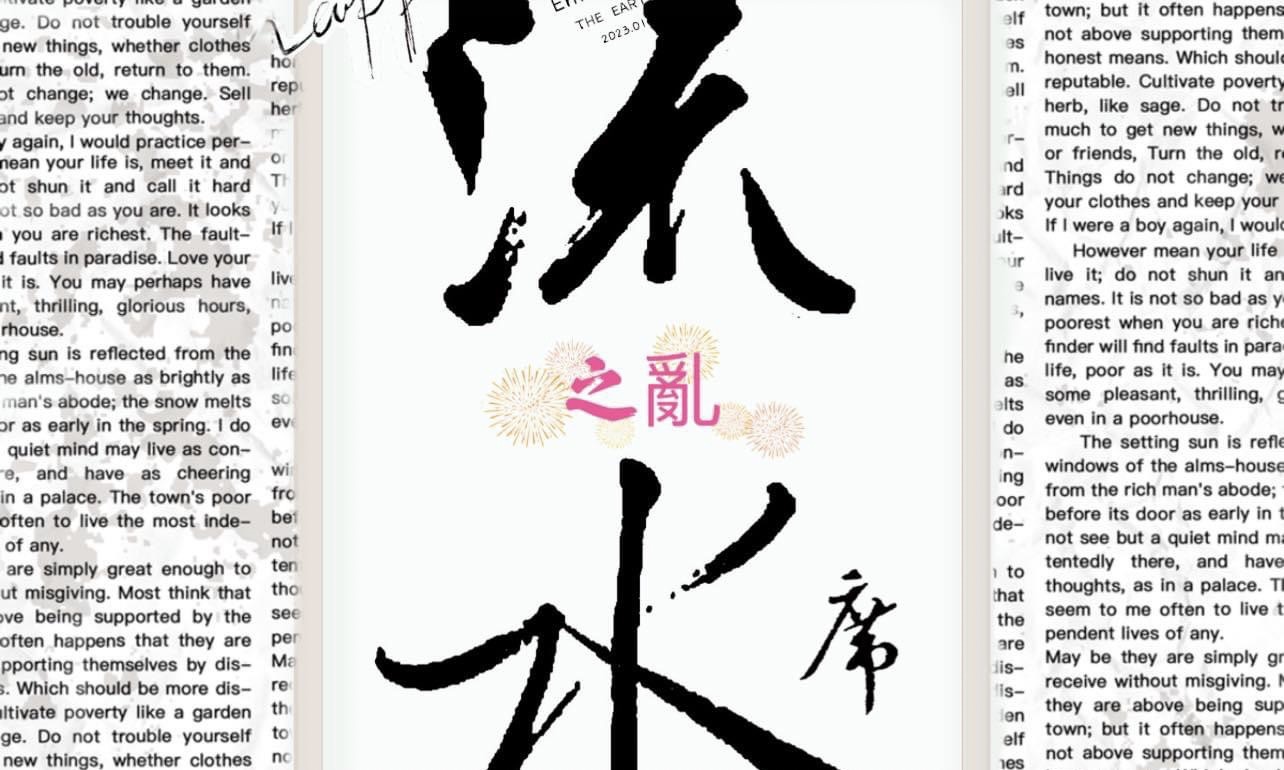 poverty like a garden
ge. Do not trouble yourself
new things, whether clothes
urn the old, return to them.
ot change; we change. Sell
and keep your thoughts.
y again, I would practice per–
mean your life is, meet it and
ot shun it and call it hard
ot so bad as you are. It looks
you are richest. The fault–
d faults in paradise. Love your
it is. You may perhaps have
nt, thrilling, glorious hours,
rhouse.
ng sun is reflected from the
he alms–house as brightly as
man's abode; the snow melts
or as early in the spring. I do
quiet mind may live as con–
re, and have as cheering
in a palace. The town's poor
often to live the most inde–
of any.
are simply great enough to
ut misgiving. Most think that
ove being supported by the
often happens that they are
pporting themselves by dis–
s. Which should be more dis–
ultivate poverty like a garden
ge. Do not trouble yourself
new things, whether clothes
hor
repu
her
or
If I
live
po
fin
life
so
eve
wi
fro
bef
not
ten
tho
see
per
Ma
rec
th
to
no
THE EAR
2023.01
流
之亂
水
席
elf
es
m.
ell
r–
nd
ard
oks
ult–
ur
e
s,
he
as
elts
do
n–
ing
oor
de–
to
that
the
are
dis–
dis–
den
elf
hes
town; but it often happens
not above supporting them
honest means. Which should
reputable. Cultivate poverty
herb, like sage. Do not tr
much to get new things, w
or friends, Turn the old, re
Things do not change; we
your clothes and keep your
If I were a boy again, I woul
However mean your life
live it; do not shun it an
names. It is not so bad as y
poorest when you are riche
finder will find faults in para
life, poor as it is. You may
some pleasant, thrilling, g
even in a poorhouse.
The setting sun is refle
windows of the alms–house
from the rich man's abode;
before its door as early in t
not see but a quiet mind ma
tentedly there, and have
thoughts, as in a palace. Th
seem to me often to live t
pendent lives of any.
May be they are simply gr
receive without misgiving. M
they are above being sup
town; but it often happens
not above supporting them